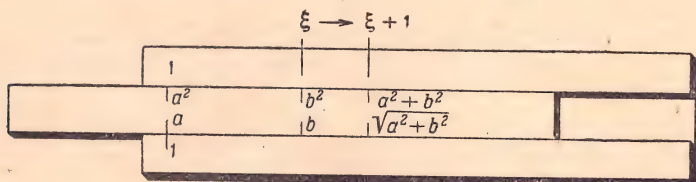 ξ → ξ + 1
1
a² b² a² + b²
a b √a² + b²
1